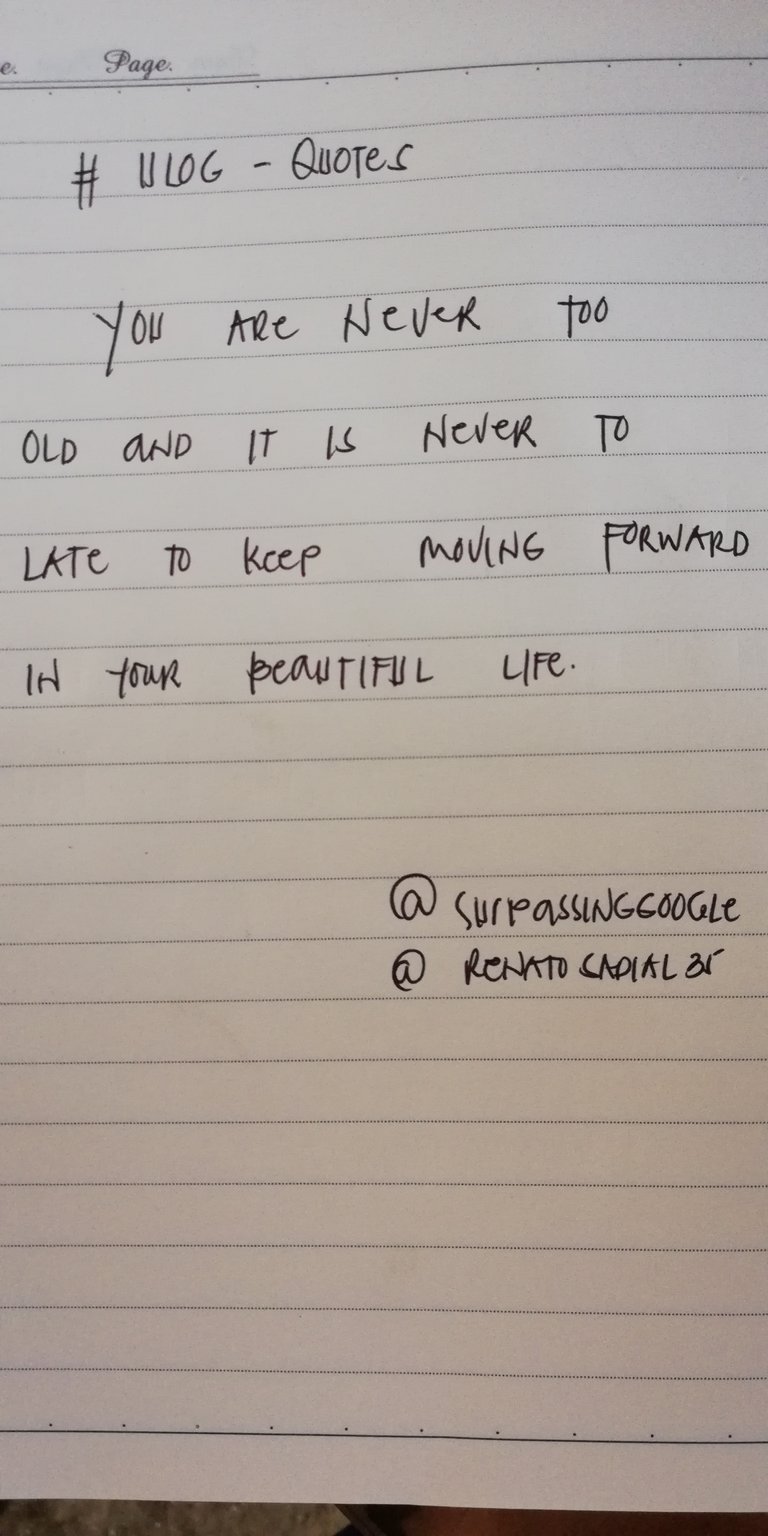 e. Page.
# ULOG - QUOTES
YOU ARE NEVER TOO
OLD AND IT IS NEVER TO
LATE TO KEEP MOVING FORWARD
IN YOUR BEAUTIFUL LIFE.
@SURPASSINGGOOGLE
@RENATOSADIAL35